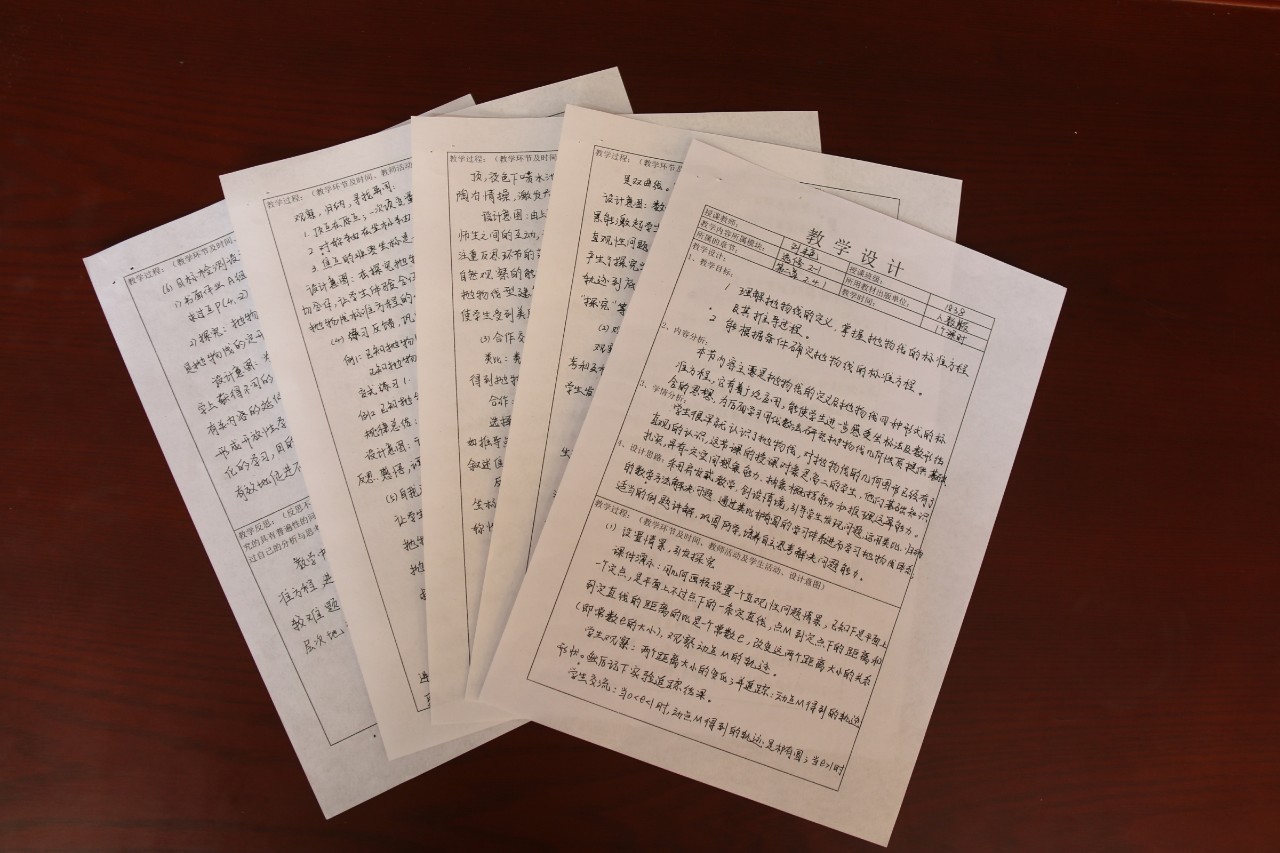 教学设计
授课教师：
授课班级：
1838
教学内容所属模块：
选修2-1
所用教材出版单位：
人教版
所属的章节：
第二章 2.4.1
教学时间：
1个课时
教学设计：
1、教学目标：
1 理解抛物线的定义，掌握抛物线的标准方程
及其推导过程。
2 能根据条件确定抛物线的标准方程。
2、内容分析：
本节内容主要是抛物线的定义及抛物线四种形式的标
准方程，它有着广泛应用，能使学生进一步感受坐标法及数形结
合的思想，为后面学习用代数法研究抛物线几何性质提供基础
3、学情分析：
学生很早就认识了抛物线，对抛物线的几何图形已经有了
直观的认识，这节课的授课对象是高二的学生，他们基础知识
扎实，具有一定空间想象能力、抽象概括能力和推理运算能力。
4、设计思路：采用启发式教学，创设情境，引导学生发现问题，运用类比、归纳
的数学方法解决问题。通过类比椭圆的学习体系进而学习抛物线体系，
适当的例题讲解，巩固所学，培养自主思考解决问题能力。
教学过程：（教学环节及时间、教师活动及学生活动、设计意图）
(1) 设置情景，引发探究
课件演示：用几何画板设置一个直观性问题情景，已知F是平面上
一个定点，是平面上不过点F的一条定直线，点M到定点F的距离和
到定直线的距离的比是一个常数e，改变这两个距离大小的关系
（即常数e的大小），观察动点M的轨迹。
学生观察：两个距离大小的变化；并追踪：动点M得到的轨迹
形状。做后记下实验追踪结果。
学生交流：当0<e<1时，动点M得到的轨迹：是椭圆；当e>1时
教学过程：（教学环节及
是双曲线。
设计意图：数
直观性问题
“探究”等
(2)
学生
教学过程：（教学环节及时间
陶冶情操，激发
设计意图：由
师生之间的互动，
注重反思环节的
自然观察的能
抛物线型建
使学生受到美
(3) 合作交
类比：
得到抛物
合作：
选择
如推导
叙述
坐标
教学过程：（教学环节及时间、教师活动
观察，归纳，寻找异同：
1. 顶点在原点；一次项变量
2. 对称轴在坐标轴
3. 焦点的非零坐标是
设计意图：在探究抛物
抛物线标准方程的
(4) 练习反馈，巩
例1：已知抛物
已知抛物
变式练习1：
例2：已知抛
规律总结：
设计意图：
反思，感悟，
(5) 自我
让学生
抛物
教学过程：（教学环节及时间、
(6) 目标检测
1) 书面作业A组
过点P(4,2)
2) 探究：抛物
是抛物线的
设计意图：
学生获得不同的
有本内容的延伸
形成开放性
化的学习，
有效地促进
教学反思：（反思
究的具有普遍性的问
过自己的分析与思考
教学中
准方程进
较难题
层次地